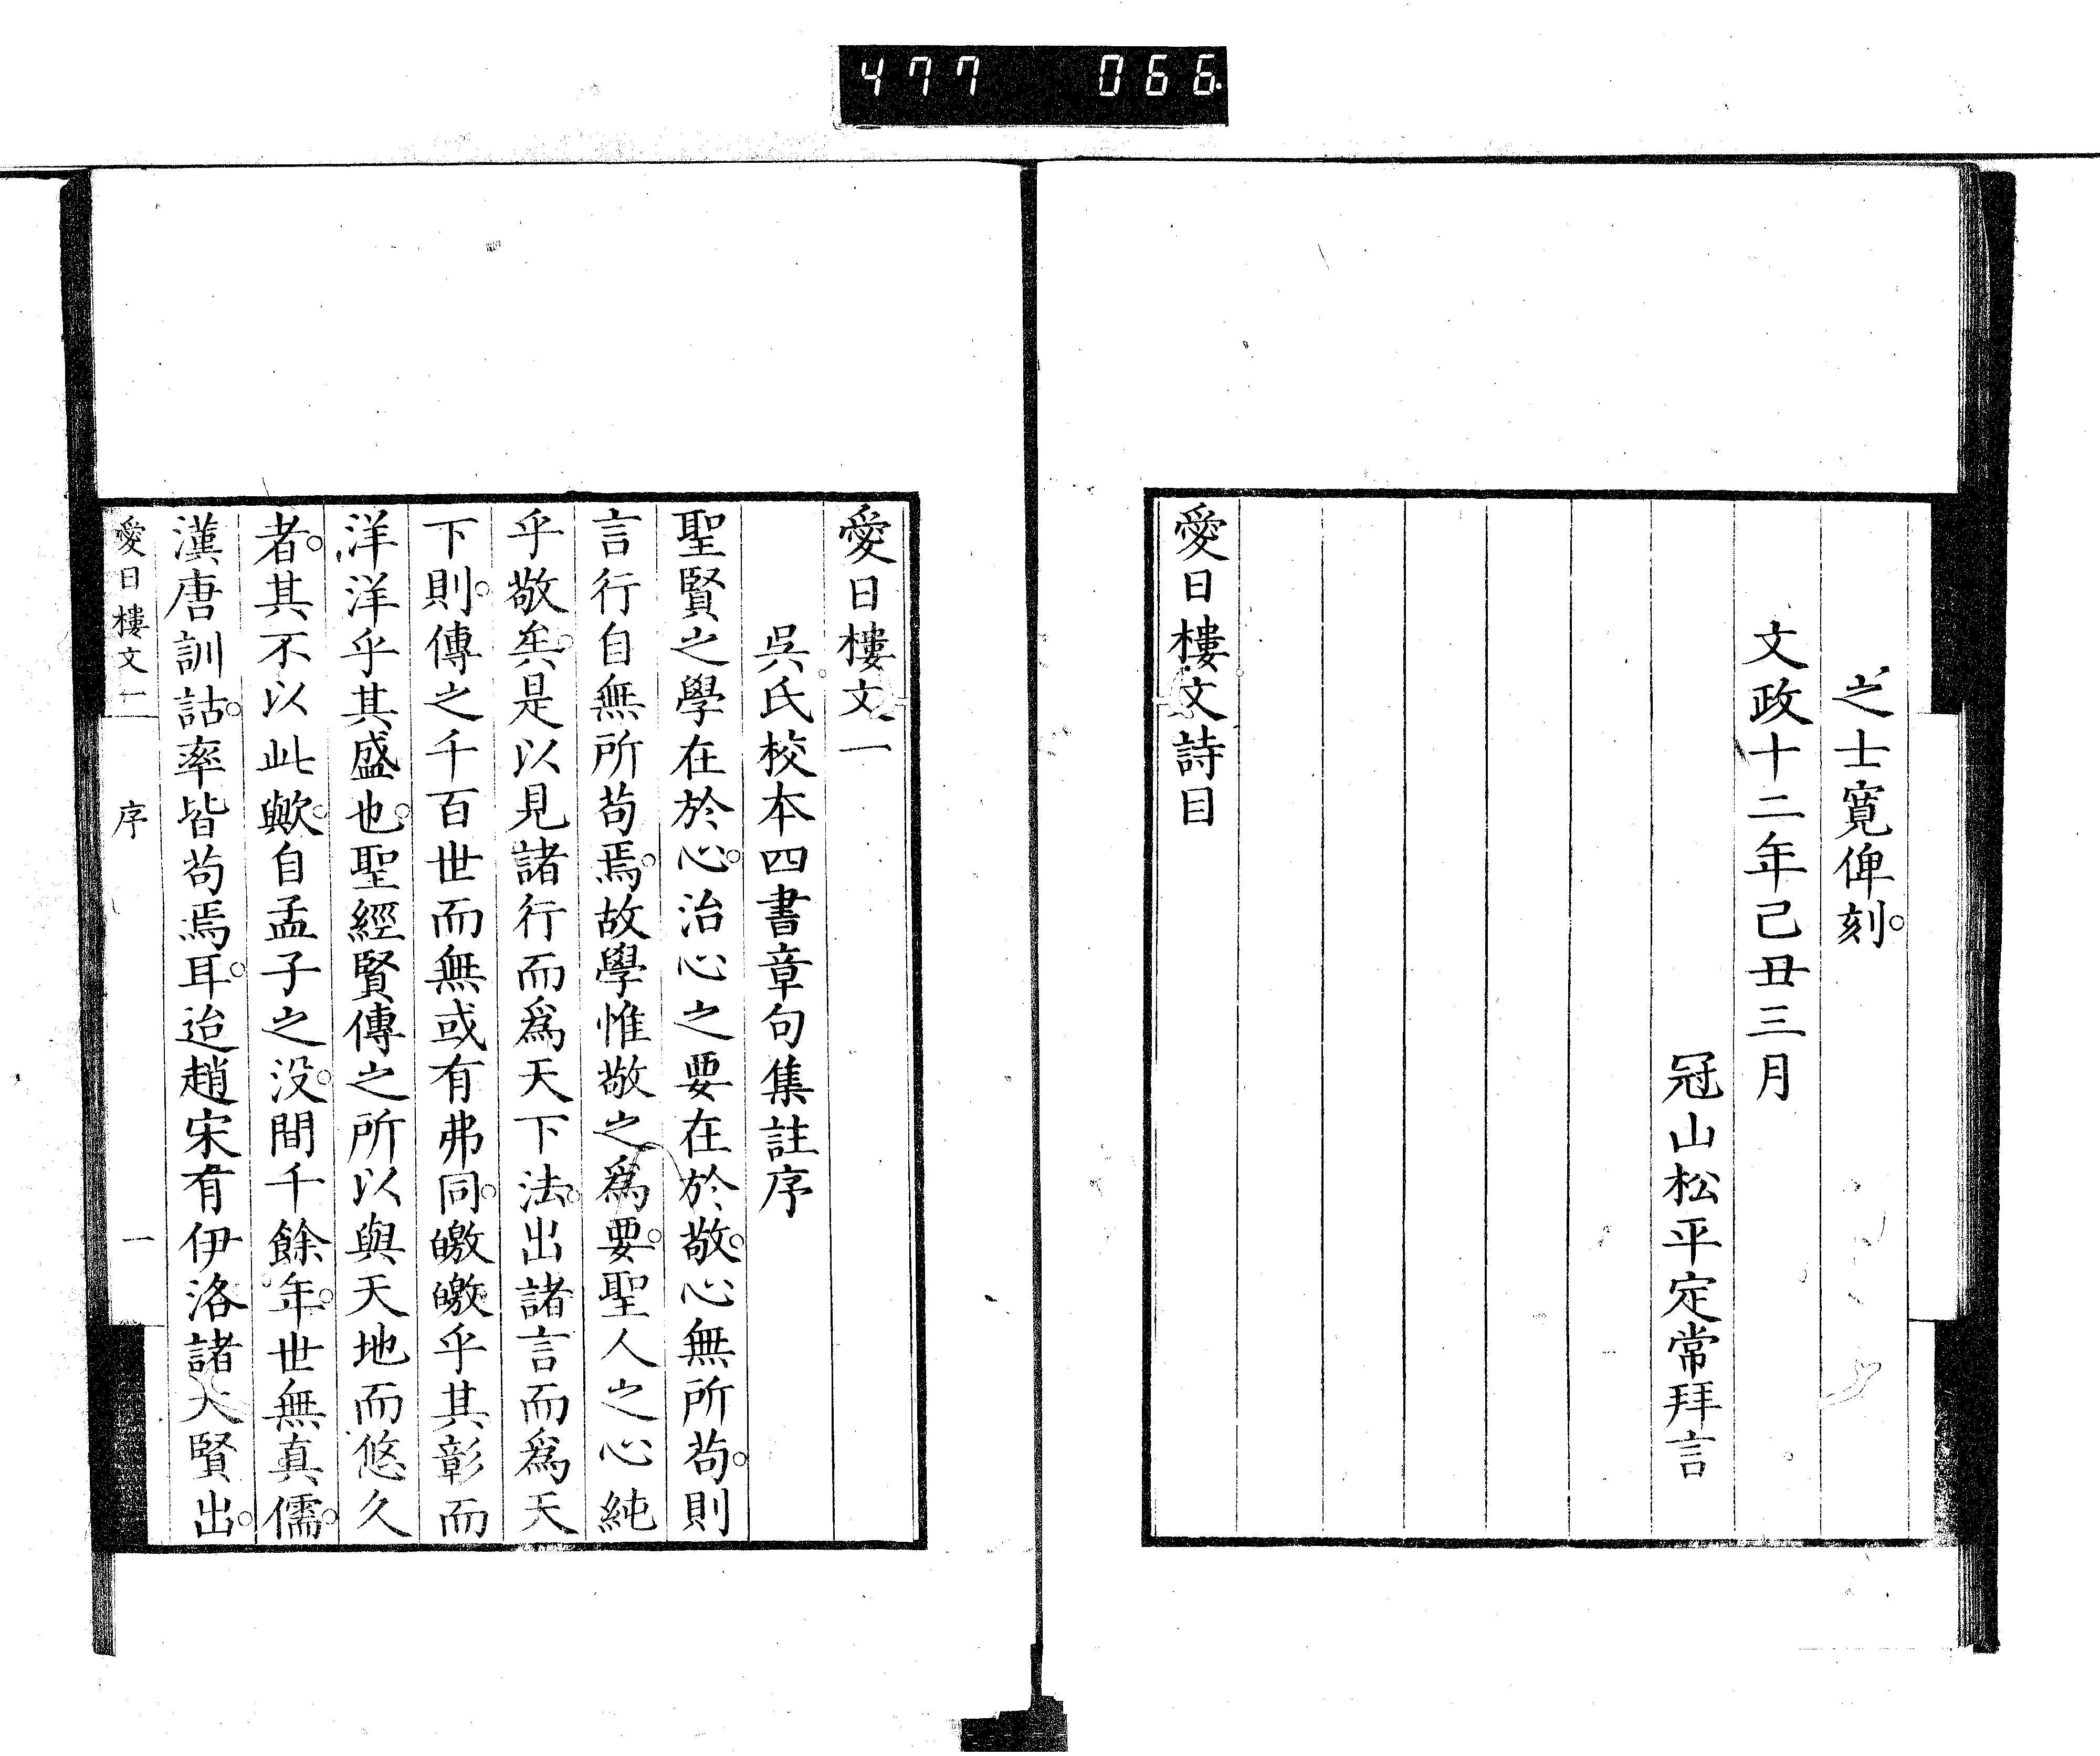 477 066
之士寛俾刻。
文政十二年己丑三月
冠山松平定常拜言
愛日樓文詩目
愛日樓文一
吳氏校本四書章句集註序
聖賢之學在於心。治心之要在於敬。心無所苟。則
言行自無所苟焉。故學惟敬之爲要。聖人之心純
乎敬矣。是以見諸行而爲天下法。出諸言而爲天
下則。傳之千百世而無或有弗同。皦皦乎其彰而
洋洋乎其盛也。聖經賢傳之所以與天地而悠久
者。其不以此歟。自孟子之没。間千餘年。世無真儒。
漢唐訓詁。率皆苟焉耳。迨趙宋有伊洛諸大賢出。
愛日樓文 序 一